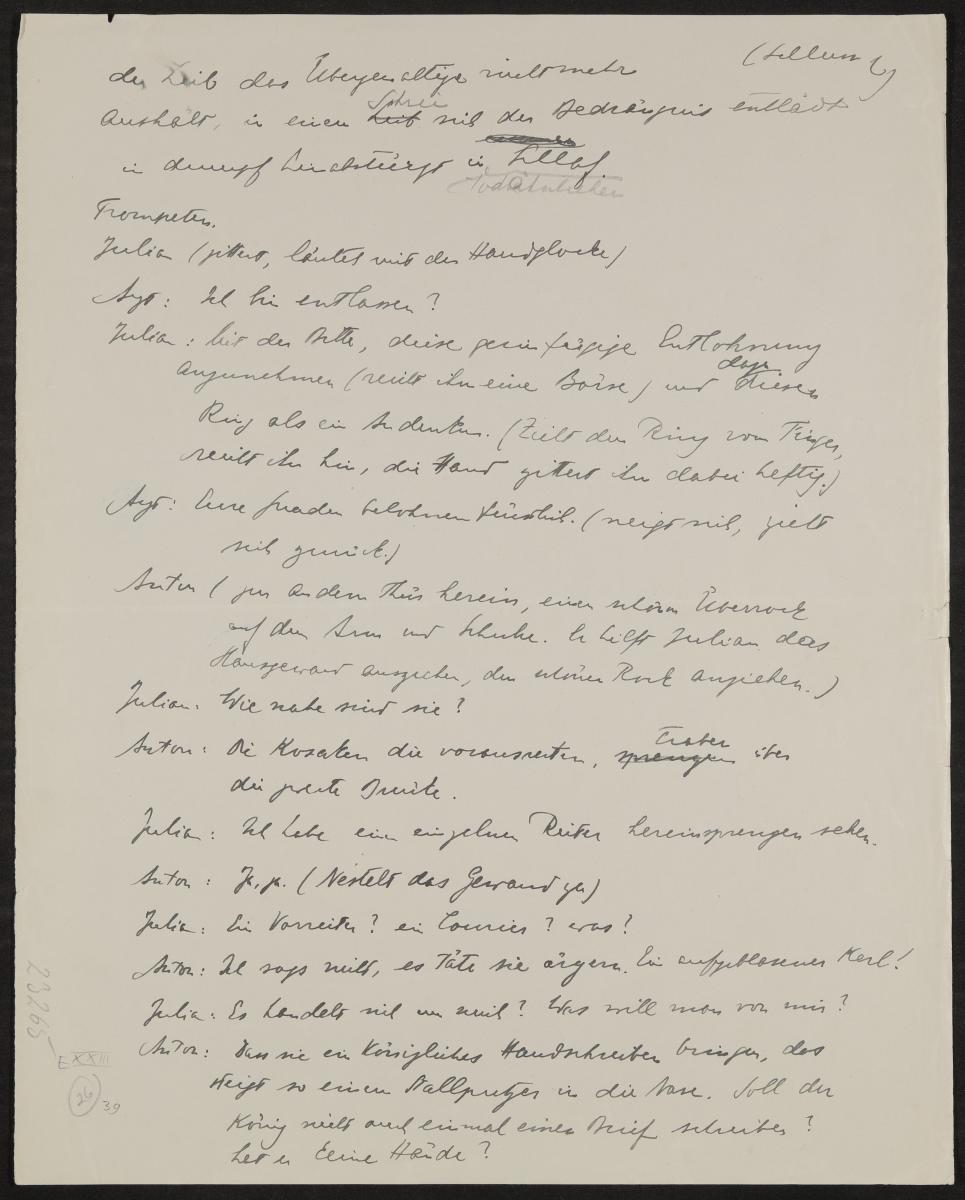 der Leib das Übergewaltige nicht mehr
aushält, in einen Leib Schrei sich der Bedrängnis entlädt
u dumpf hinabstürzt in Schlaf.
Todähnlichen
Trompeten.
Julian (zittert, läutet mit der Handglocke)
Arzt: Ich bin entlassen?
Julian: Mit der Bitte, diese geringfügige Entlohnung
anzunehmen (reicht ihm eine Börse) und dazu diesen
Ring als ein Andenken. (Zieht den Ring vom Finger,
reicht ihn hin, die Hand zittert ihm dabei heftig.)
Arzt: Eure Gnaden belohnen fürstlich. (neigt sich, zieht
sich zurück.)
Anton (zur andern Thür herein, einen schönen Überrock
auf dem Arm und Schuhe. Er hilft Julian das
Hausgewand ausziehen, den schönen Rock anziehen.)
Julian: Wie nahe sind sie?
Anton: Die Kosaken die vorausreiten, sprengen Traben über
die zweite Brücke.
Julian: Ich habe einen einzelnen Reiter hereinsprengen sehen.
Anton: Ja, ja. (Nestelt das Gewand zu)
Julian: Ein Vorreiter? ein Courier? was?
Anton: Ich sags nicht, es täte sie ärgern. Ein aufgeblasener Kerl!
Julian: Es handelt sich um mich? Was will man von mir?
Anton: Dass sie ein königliches Handschreiben bringen, das
steigt so einem Stallputzer in die Nase. Soll der
König nicht auch einmal einen Brief schreiben?
hat er keine Hände?
23265
E XXIII
26
39